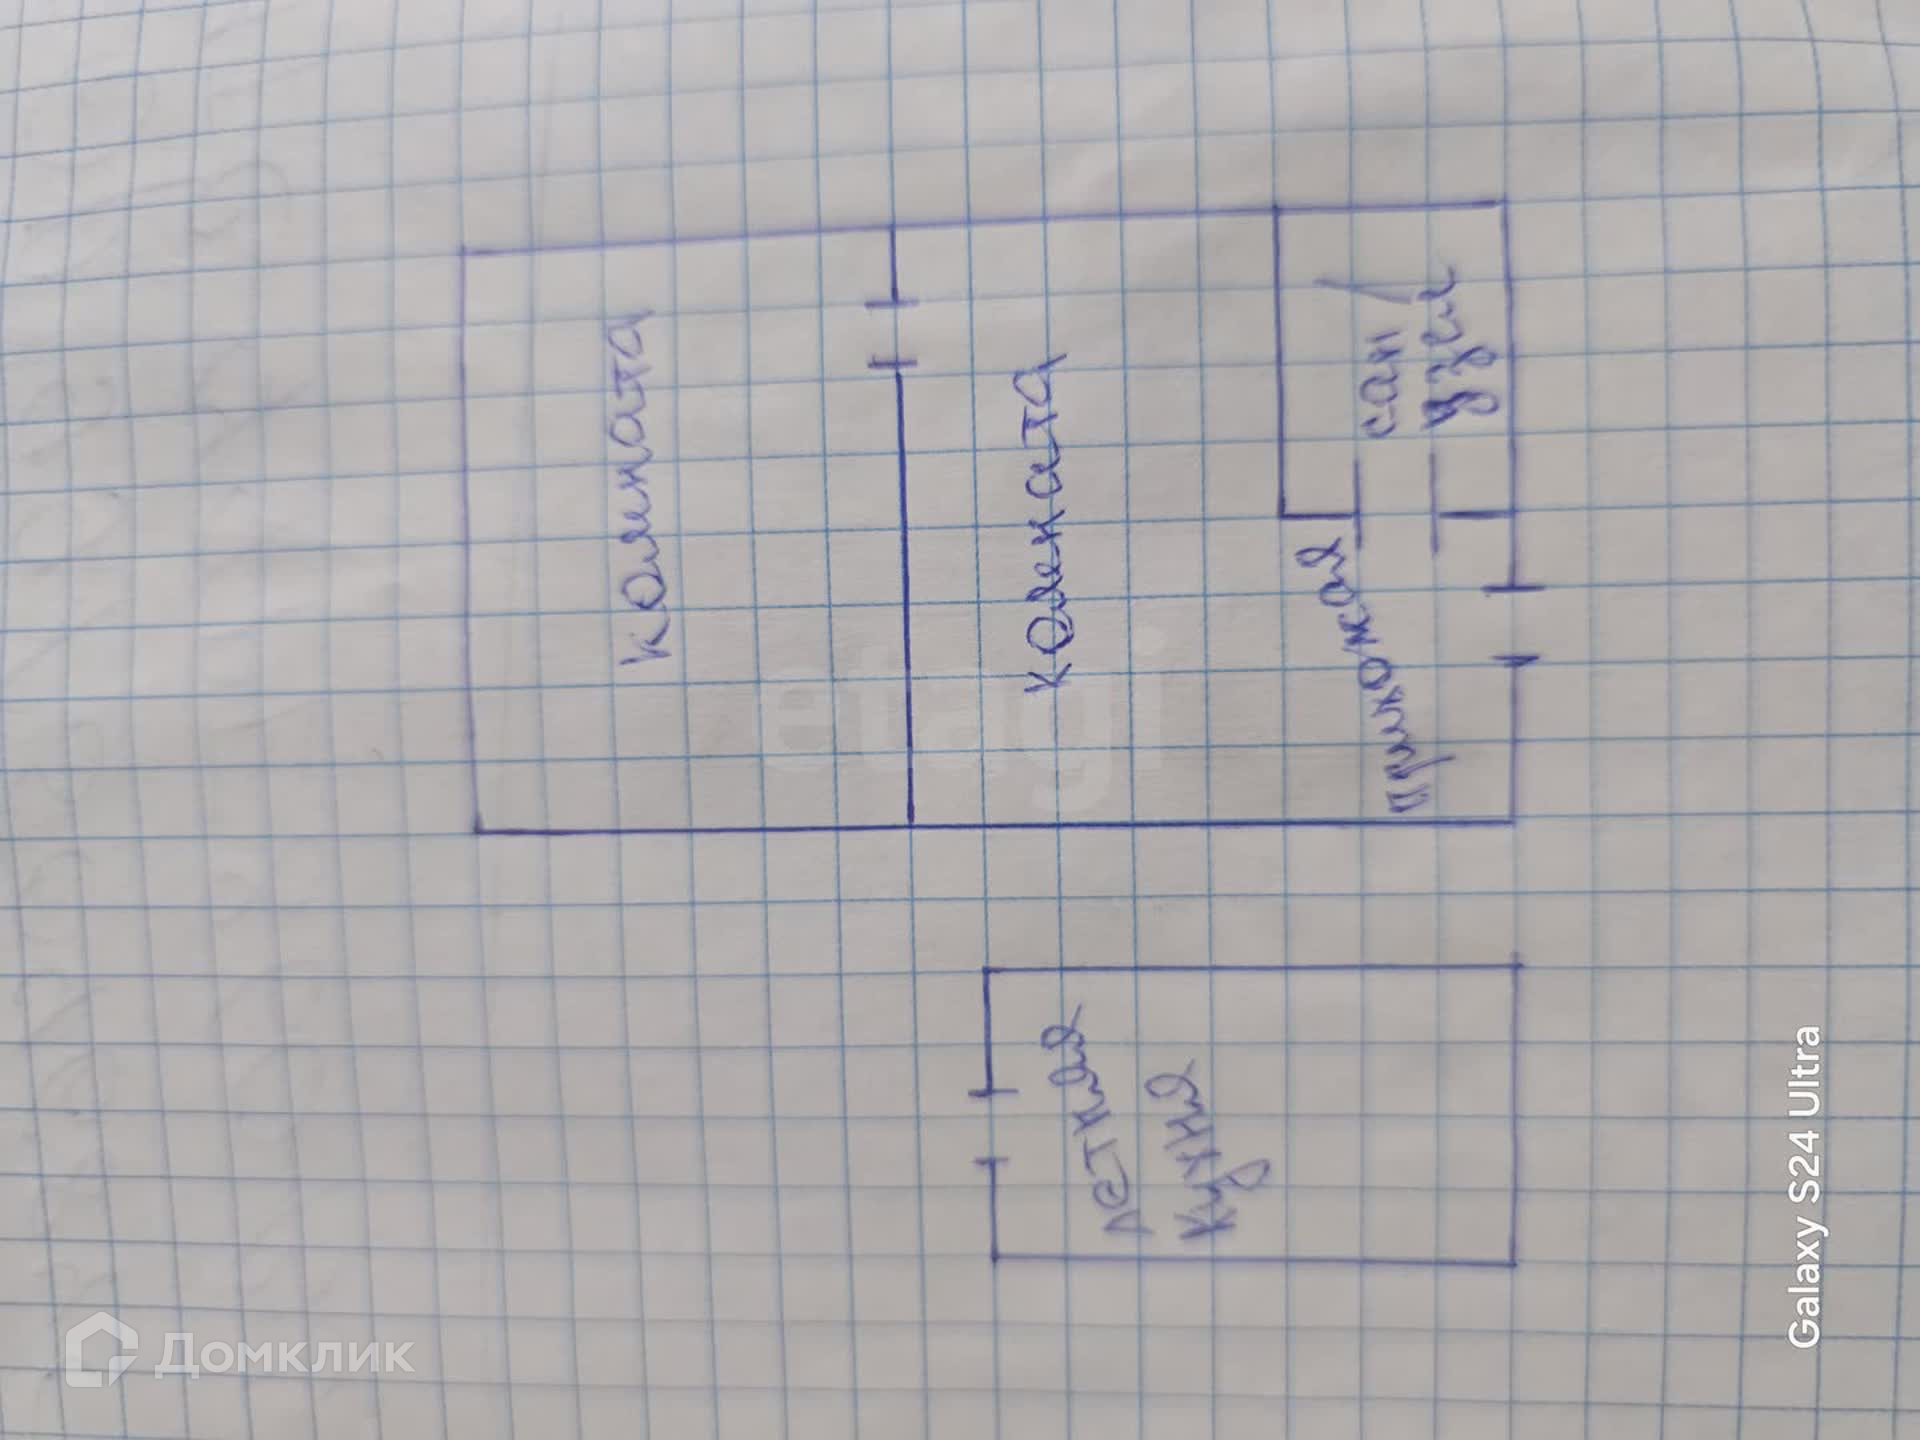 комната
комната
сан/
узел
прихожая
летняя
кухня
etagi
Домклик
Galaxy S24 Ultra